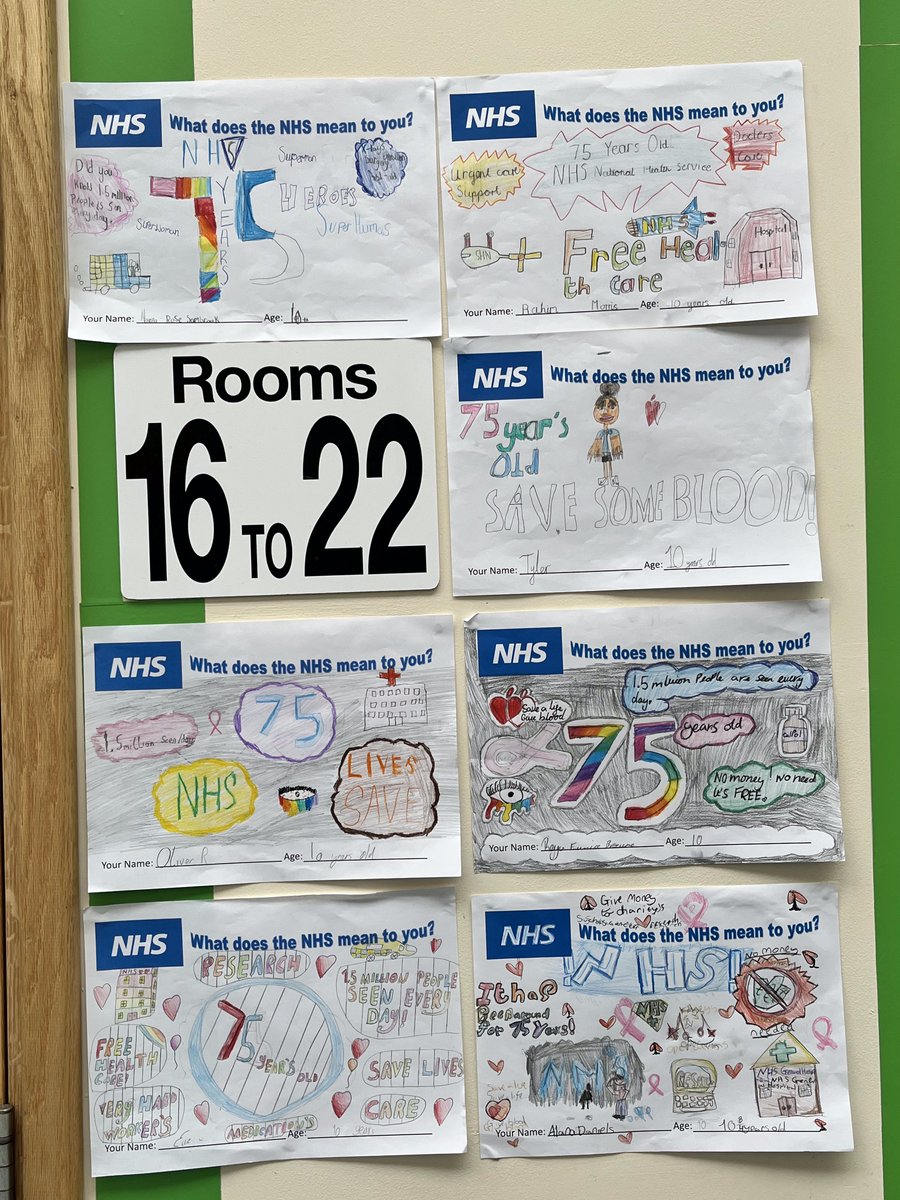 NHS
What does the NHS mean to you?
Did you
1.5 million
People is
day.
NHS
75
YEARS
Superman
HEROES
Super Humans
Superwoman
Your Name: Rose
Age: 10
NHS
What does the NHS mean to you?
Urgent care
Support
75 Years Old
NHS National Health Service
Doctors
Care
NHS
Free Heal
th Care
Hospital
Your Name: Rahim Morris
Age: 10 years old
Rooms
16 TO 22
NHS
What does the NHS mean to you?
75
year's
Old
SAVE SOME BLOOD!
Your Name: Tyler
Age: 10 years old
NHS
What does the NHS mean to you?
1.5 million seen/day
75
NHS
LIVES
SAVE
Your Name: Oliver R
Age: 10 years old
NHS
What does the NHS mean to you?
Save a life
Give blood
1.5 million People are seen every
day.
75
years old
calpol
No money! No need
it's FREE.
Your Name:
Age: 10
NHS
What does the NHS mean to you?
NHS
RESEARCH
1.5 MILLION PEOPLE
SEEN EVERY
DAY!
75
YEAR'S OLD
FREE
HEALTH
CARE!
SAVE LIVES
VERY HARD
WORKER'S
CARE
MEDICATION'S
Your Name:
Age: years
Give Money
to charity's
NHS
What does the NHS mean to you?
NHS!
No money
needed
It has
Been around
for 75 Years!
NHS
NHS General
Hospital
Your Name: Alana Daniels
Age: 10 years old